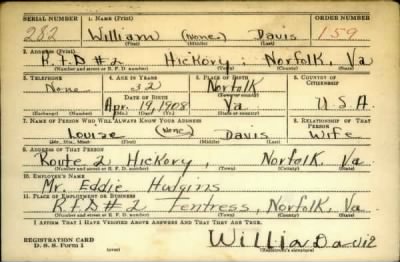 SERIAL NUMBER 1. NAME (Print) ORDER NUMBER
282 William (None) Davis 159
(First) (Middle) (Last)
2. ADDRESS (Print)
R.F.D #2 Hickory, Norfolk, Va
(Number and street or R. F. D. number) (Town) (County) (State)
3. TELEPHONE 4. AGE IN YEARS 5. PLACE OF BIRTH 6. COUNTRY OF CITIZENSHIP
None 32 Norfolk
(Town or county)
DATE OF BIRTH
Apr. 19, 1908 Va U.S.A.
(Exchange) (Number) (Mo.) (Day) (Yr.) (State or country)
7. NAME OF PERSON WHO WILL ALWAYS KNOW YOUR ADDRESS 8. RELATIONSHIP OF THAT PERSON
Louise (None) Davis Wife
(Mr., Mrs., Miss) (First) (Middle) (Last)
9. ADDRESS OF THAT PERSON
Route 2 Hickory, Norfolk, Va.
(Number and street or R. F. D. number) (Town) (County) (State)
10. EMPLOYER'S NAME
Mr. Eddie Hutgins
11. PLACE OF EMPLOYMENT OR BUSINESS
R.F.D #2 Fentress, Norfolk, Va.
(Number and street or R. F. D. number) (Town) (County) (State)
I AFFIRM THAT I HAVE VERIFIED ABOVE ANSWERS AND THAT THEY ARE TRUE.
REGISTRATION CARD
D. S. S. Form 1 (over) (Registrant's signature)